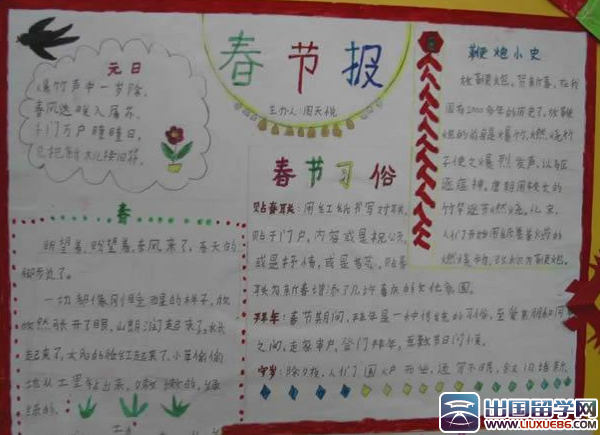 春节报
主办人:周天悦
元日
爆竹声中一岁除,
春风送暖入屠苏。
千门万户曈曈日,
总把新桃换旧符。
春
盼望着,盼望着,春风来了,春天的
脚步近了。
一切都像刚睡醒的样子,欣
欣然张开了眼。山朗润起来了,水长
起来了,太阳的脸红起来了。小草偷偷
地从土里钻出来,嫩嫩的,绿
绿的。
春节习俗
贴春联:用红纸书写对联,
贴于门户。内容或是祝福,
或是抒情,或是
联为新春增添了几许喜庆的文化氛围。
拜年:春节期间,拜年是一种传统的习俗,至爱亲朋和同
之间,走亲串户,登门拜年,互致节日问候。
守岁:除夕夜,人们围炉而坐,通宵不眠,叙旧话新
鞭炮小史
放鞭炮,贺新春,在我
国有2000多年的历史了。放鞭
炮的前身是爆竹,燃烧竹
子使之爆烈发声,以驱
逐瘟神。唐朝用较长的
竹竿逐节燃烧。北宋,
人们开始用纸裹着火药的
燃爆物,改称为鞭炮。
出国留学网
WWW.LIUXUE86.COM